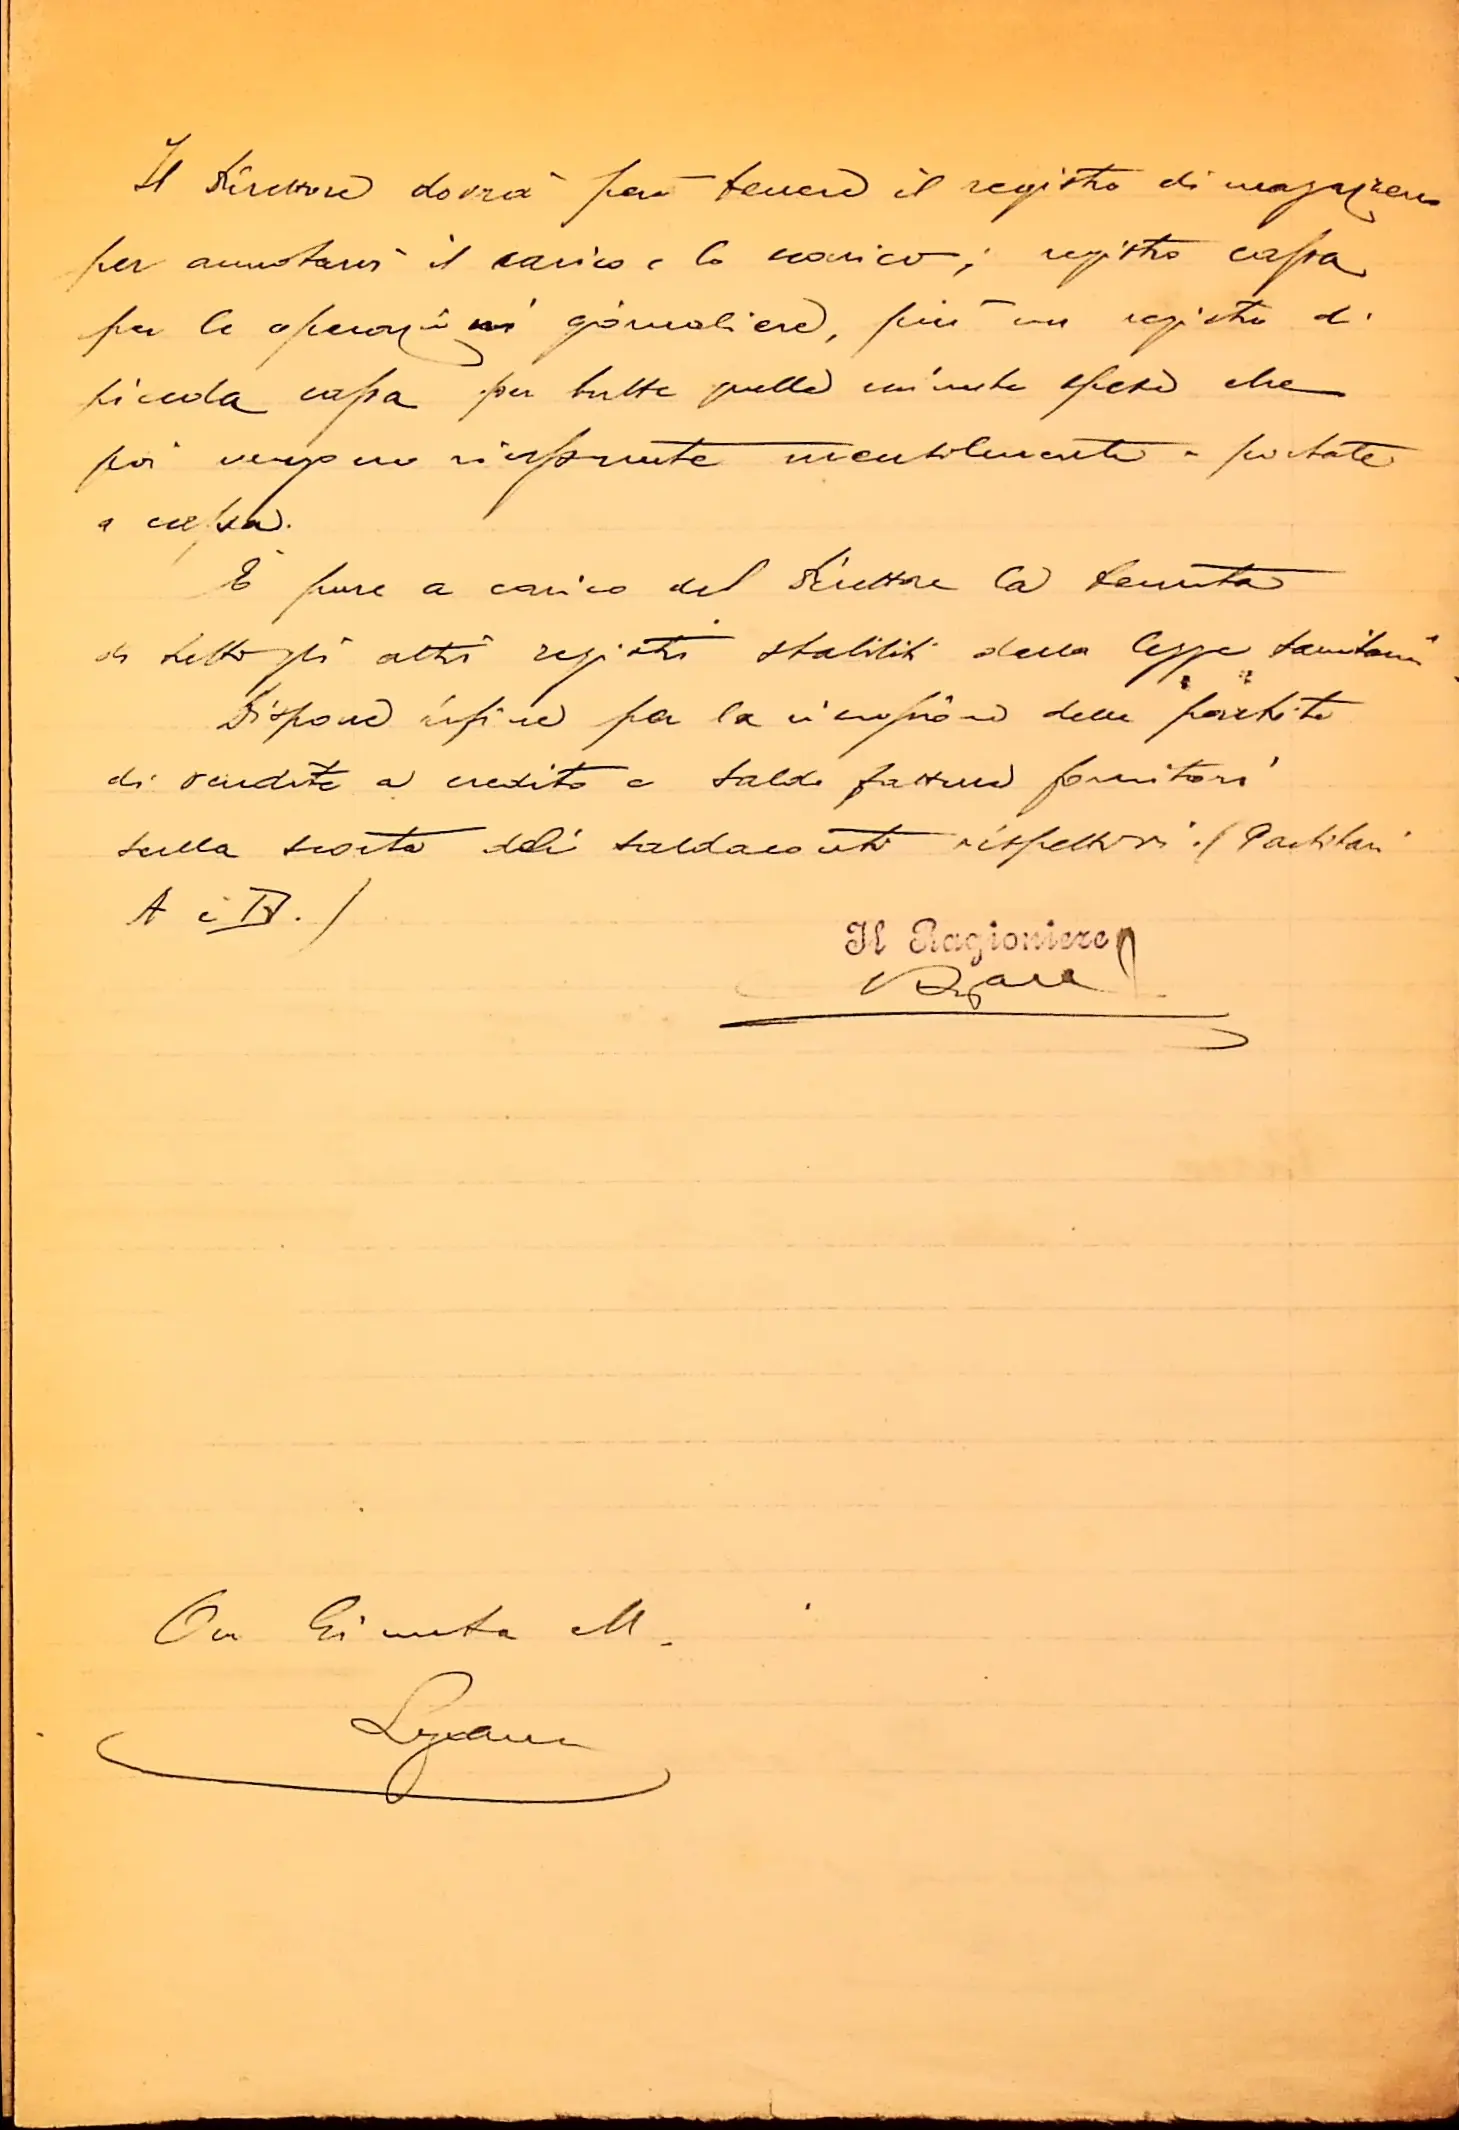 Il Direttore dovrà però tenere il registro di magazzeno
per annotarvi il carico e lo scarico; registro cassa
per le operazioni giornaliere, più un registro di
piccola cassa per tutte quelle minute spese che
poi vengono riassunte mensilmente e portate
a cassa.
È pure a carico del Direttore la tenuta
di tutti gli altri registri stabiliti dalla legge sanitaria
Dispone infine per la riscossione delle partite
di vendite a credito e saldo fatture fornitori
sulla scorta dei saldaconti rispettivi. (Partitari
A e B.)
Il Ragioniere
On Giunta M.